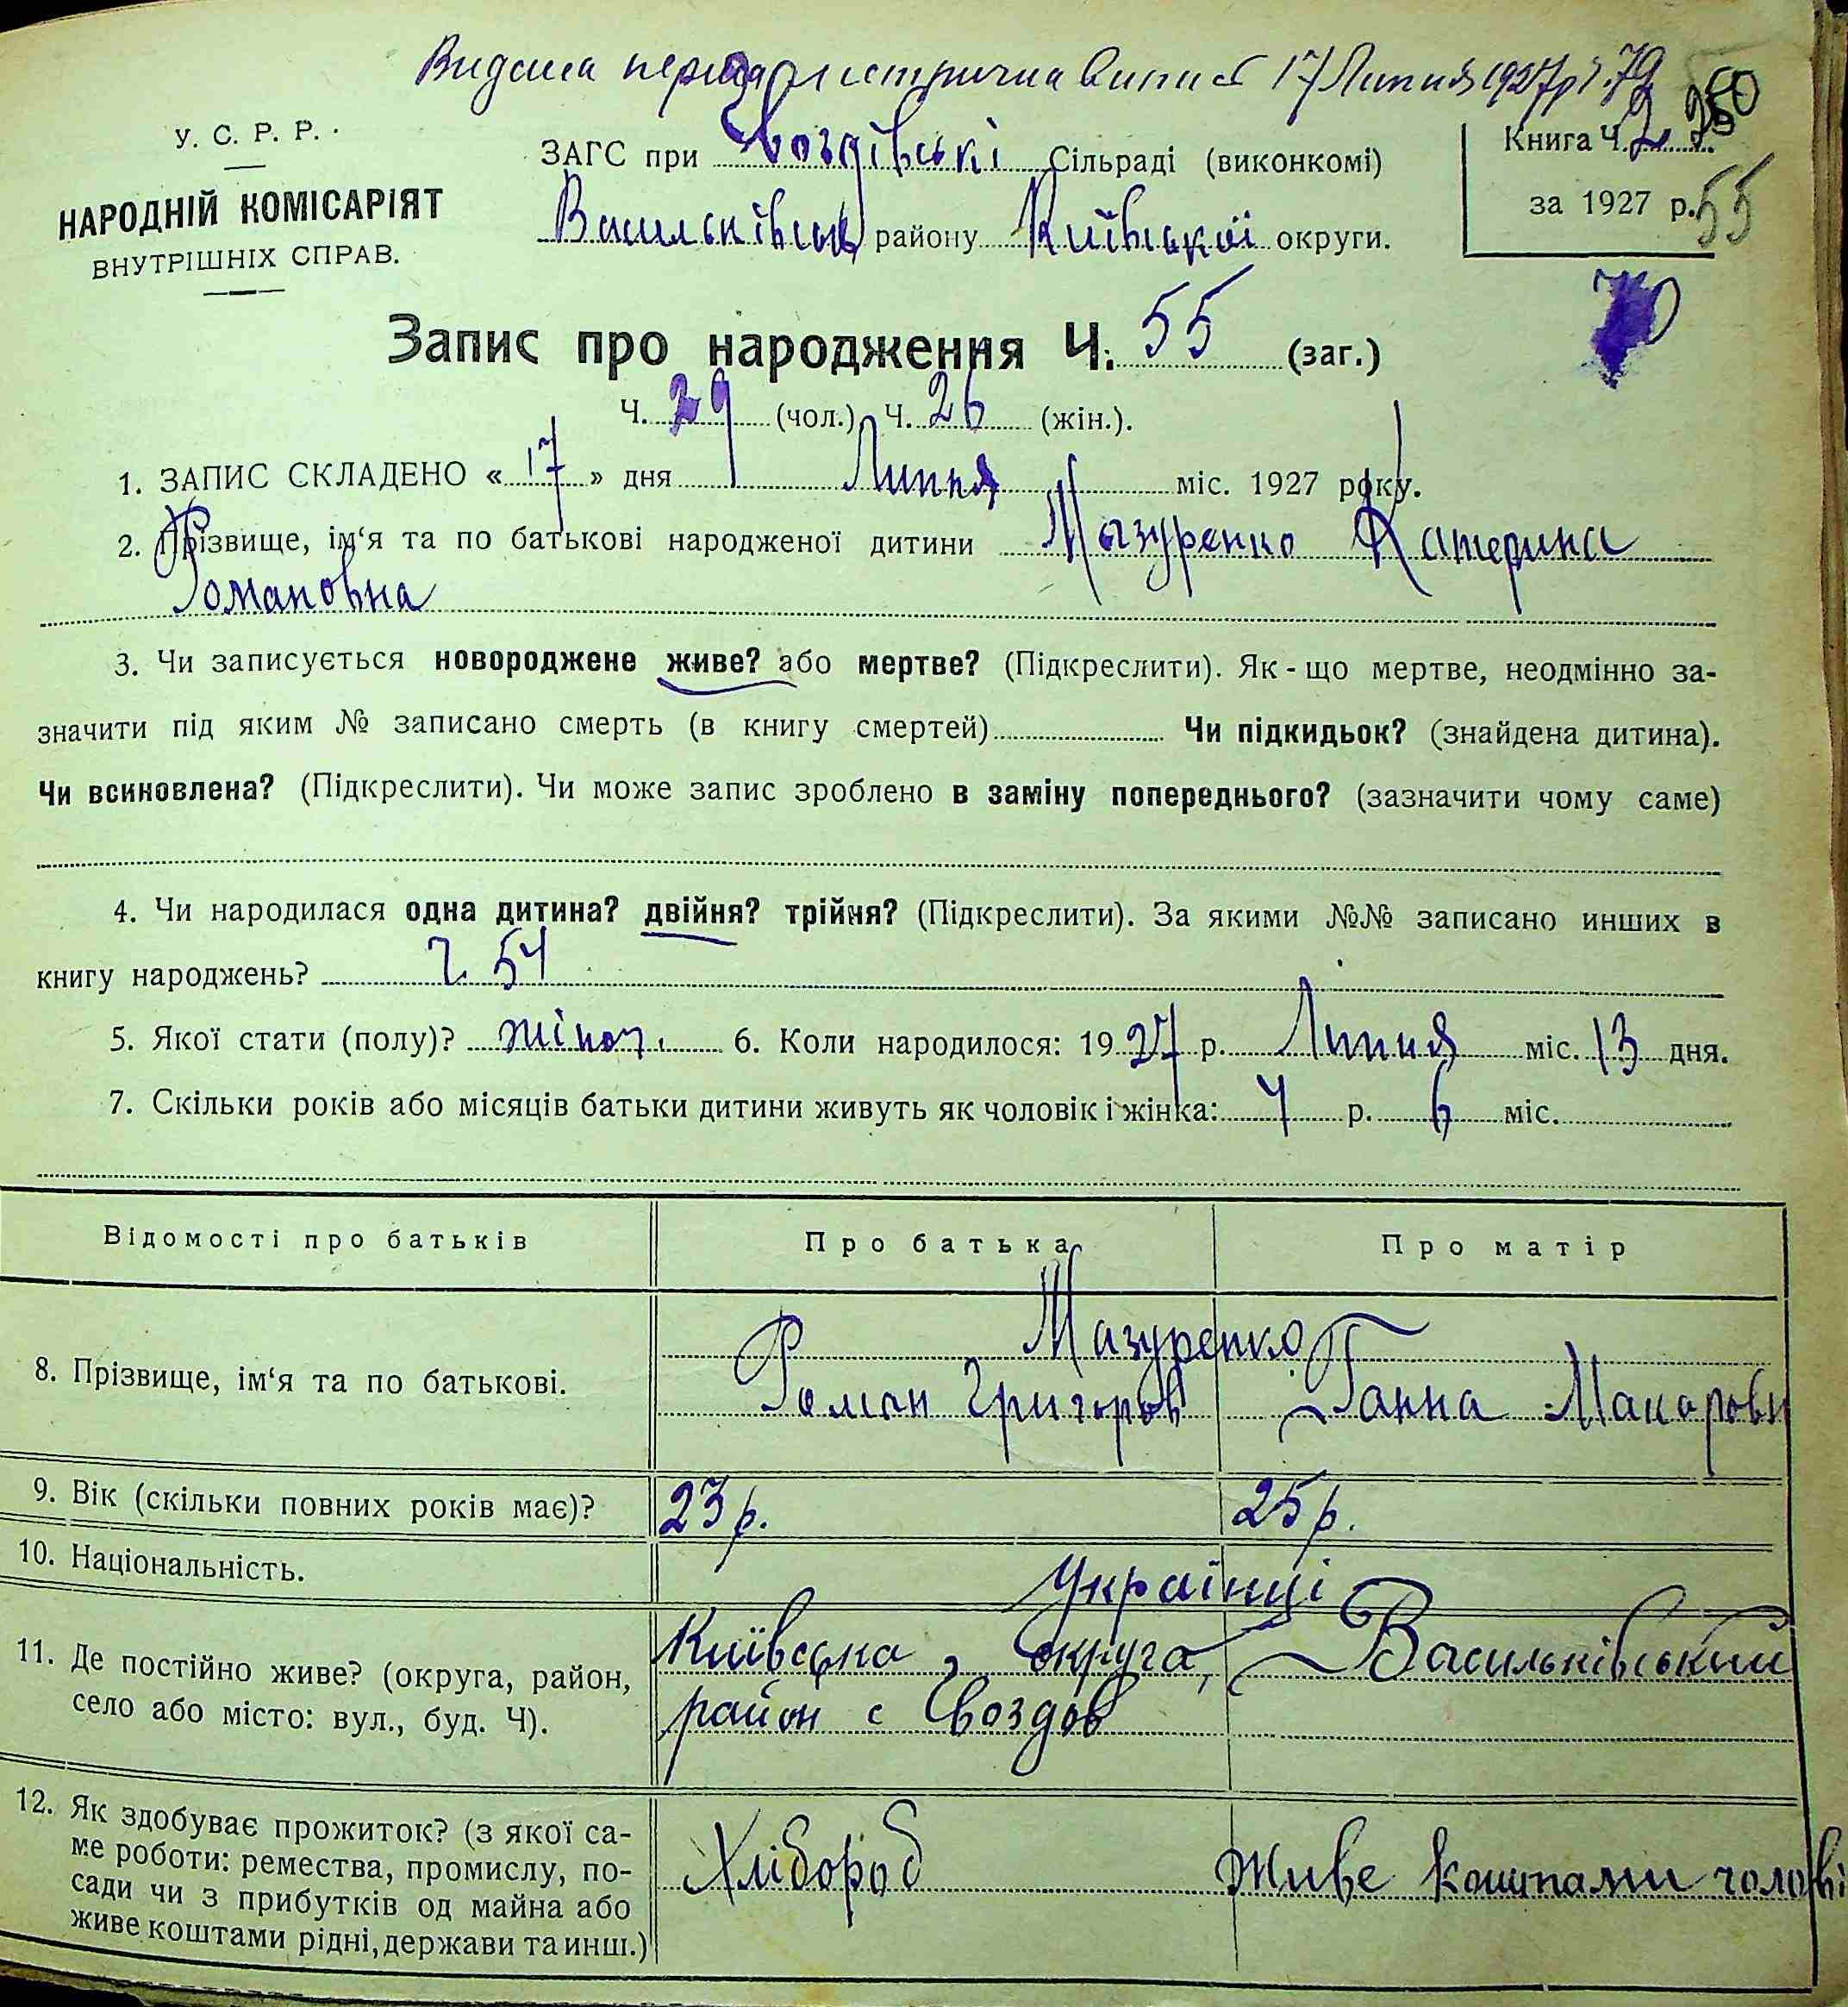 Видана першаястрична випись 17 Липня 1927р Ч.79
У. С. Р. Р.
НАРОДНІЙ КОМІСАРІЯТ
ВНУТРІШНІХ СПРАВ.
ЗАГС при Гвоздівські Сільраді (виконкомі)
Васильківськ району Київської округи.
Книга Ч. 2
за 1927 р. 55
70
Запис про народження Ч. 55 (заг.)
Ч. 29 (чол.) Ч. 26 (жін.).
1. ЗАПИС СКЛАДЕНО « 17 » дня Липня міс. 1927 року.
2. Прізвище, ім‘я та по батькові народженої дитини Мазуренко Катерина
Романовна
3. Чи записується новороджене живе? або мертве? (Підкреслити). Як - що мертве, неодмінно за-
значити під яким № записано смерть (в книгу смертей) Чи підкидьок? (знайдена дитина).
Чи всиновлена? (Підкреслити). Чи може запис зроблено в заміну попереднього? (зазначити чому саме)
4. Чи народилася одна дитина? двійня? трійня? (Підкреслити). За якими №№ записано инших в
книгу народжень? Ч. 54
5. Якої стати (полу)? жіноч. 6. Коли народилося: 1927 р. Липня міс. 13 дня.
7. Скільки років або місяців батьки дитини живуть як чоловік і жінка: 4 р. 6 міс.
Відомості про батьків Про батька Про матір
8. Прізвище, ім‘я та по батькові. Мазуренко
Роман Григоров Ганна Макаровн
9. Вік (скільки повних років має)? 23 р. 25 р.
10. Національність. Українці
11. Де постійно живе? (округа, район,
село або місто: вул., буд. Ч).
Київська округа, Васильківський
район с Гвоздов
12. Як здобуває прожиток? (з якої са-
ме роботи: ремества, промислу, по-
сади чи з прибутків од майна або
живе коштами рідні, держави та инш.)
Хлібороб Живе коштами чолові